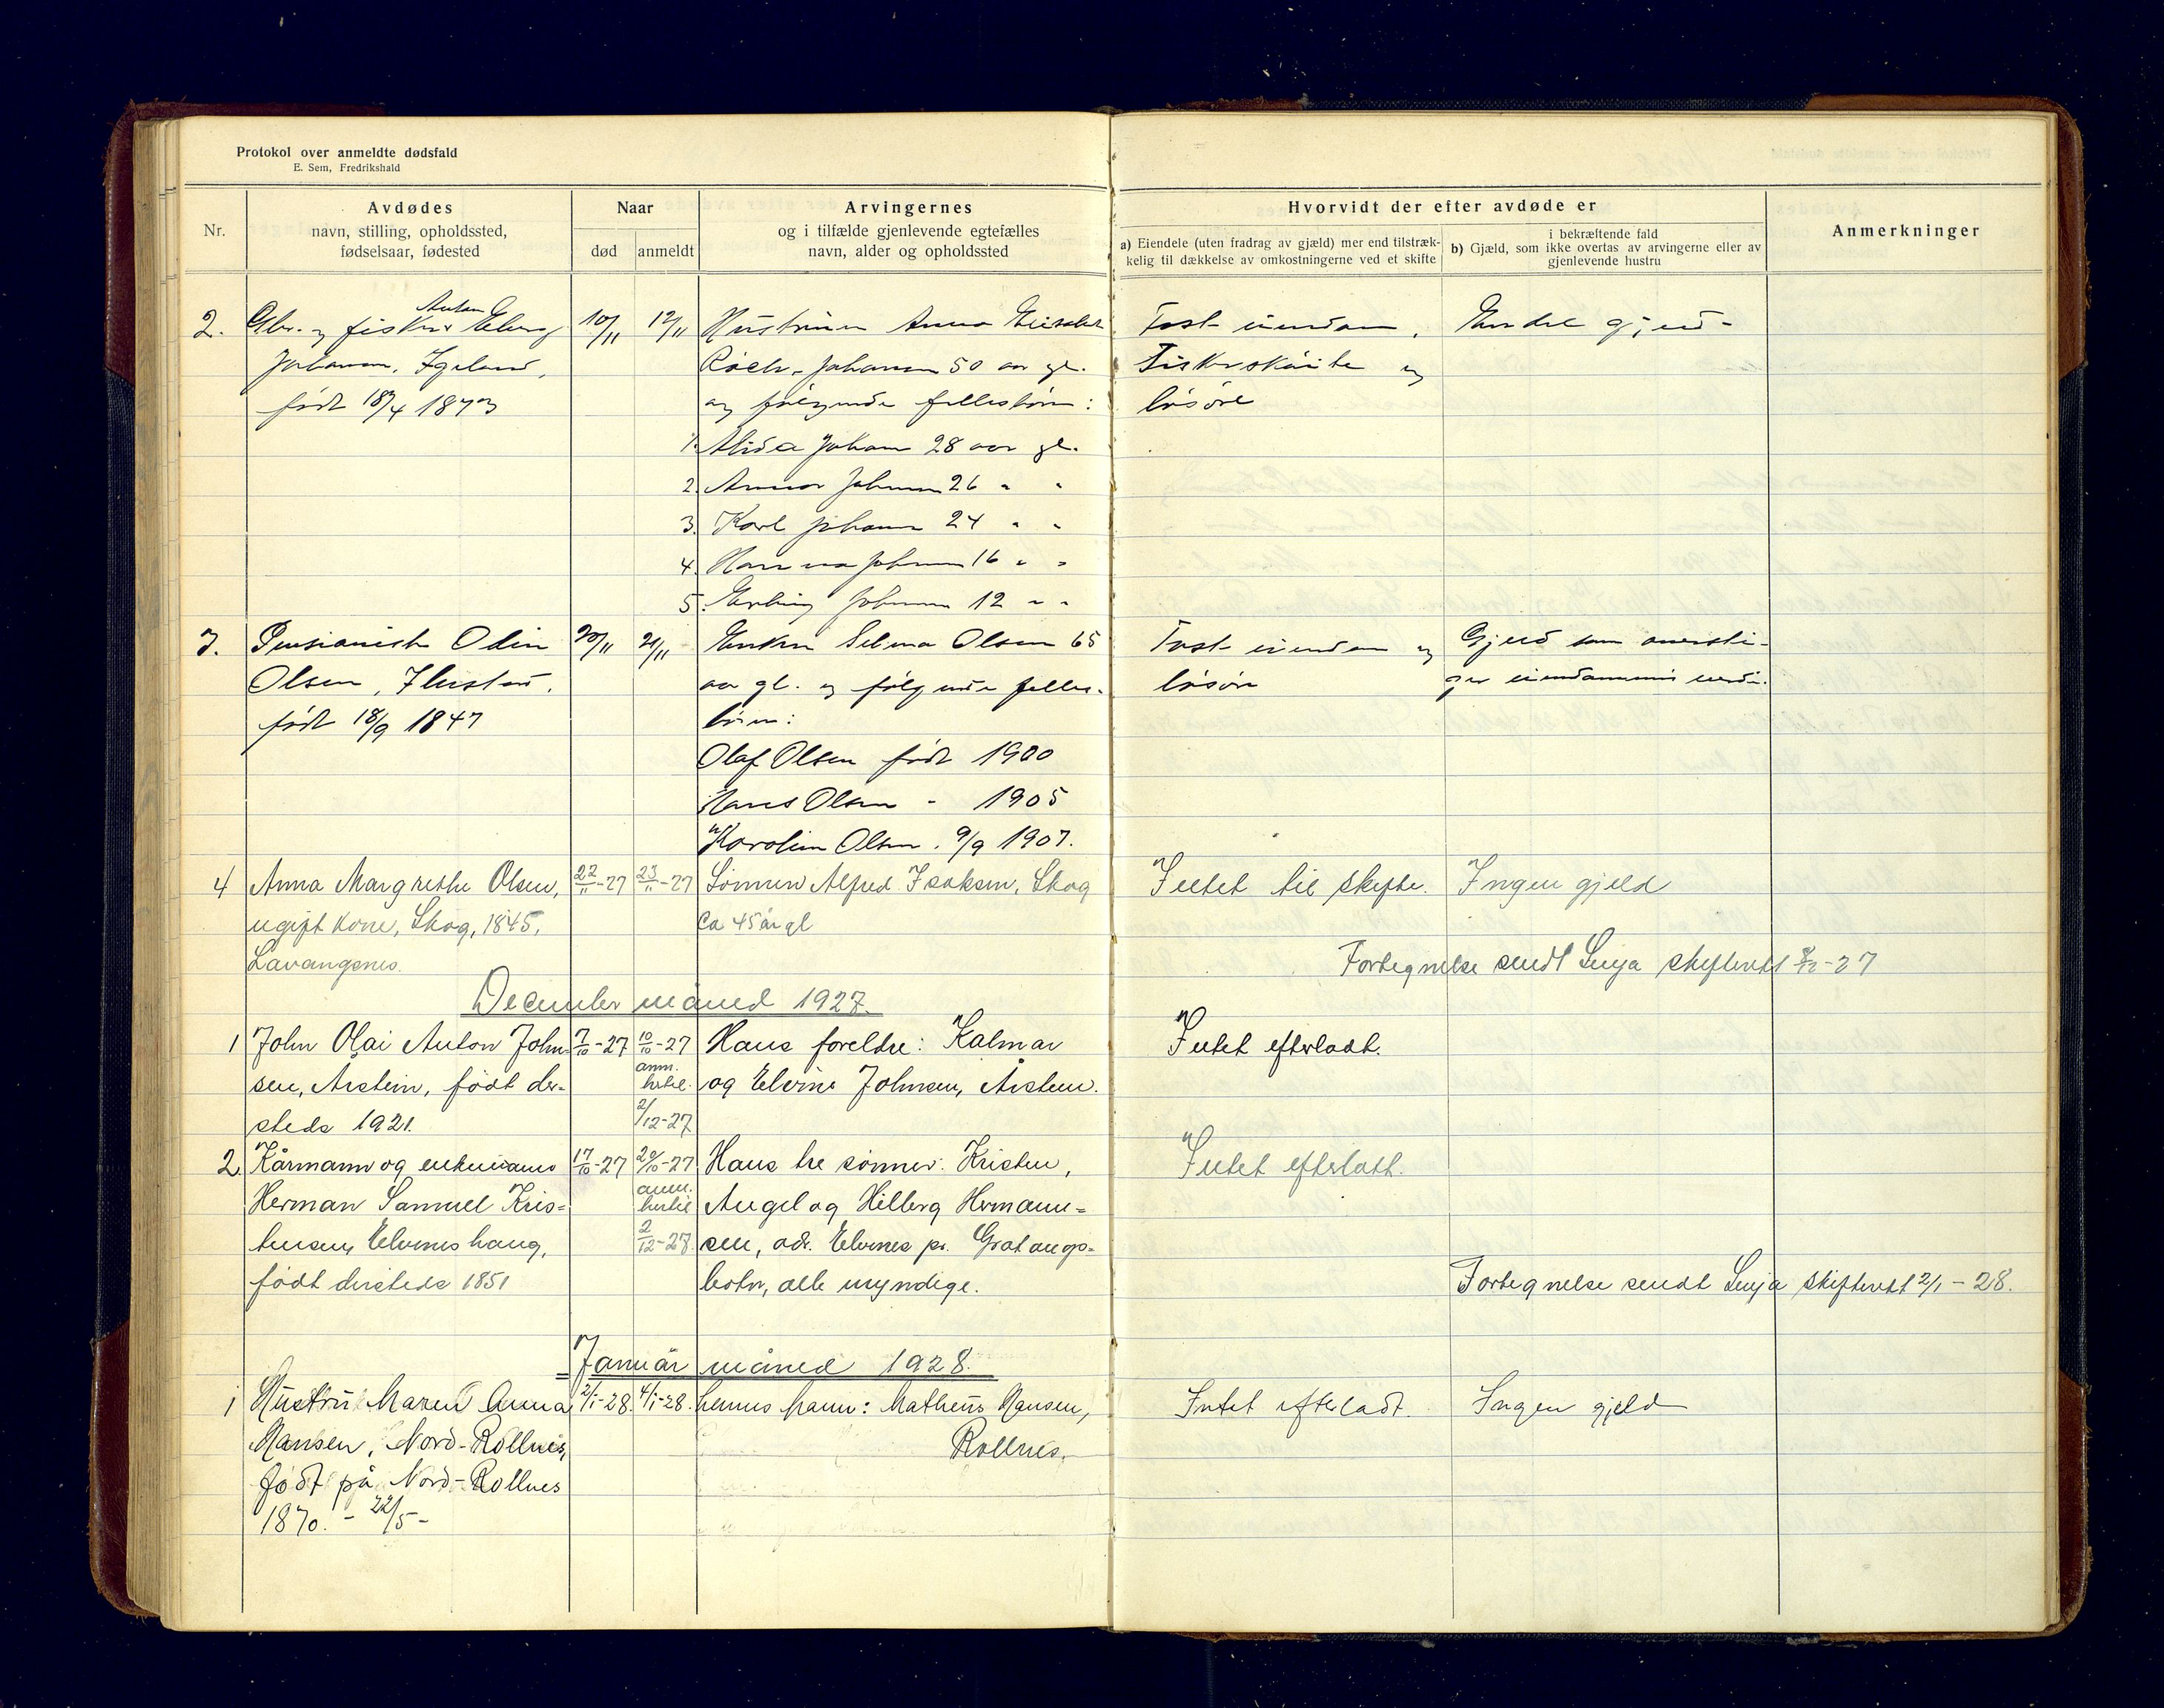 Protokol over anmeldte dødsfald
E. Sem, Fredrikshald
Nr.
Avdødes
navn, stilling, opholdssted,
fødselsaar, fødested
Naar
død
anmeldt
Arvingernes
og i tilfælde gjenlevende egtefælles
navn, alder og opholdssted
Hvorvidt der efter avdøde er
a) Eiendele (uten fradrag av gjæld) mer end tilstræk-
kelig til dækkelse av omkostningerne ved et skifte
i bekræftende fald
b) Gjæld, som ikke overtas av arvingerne eller av
gjenlevende hustru
Anmerkninger
2. Gbr. og fisker Anton Eberg 10/11 12/11 Hustruen Anna
Johansen, Igeland, Johansen 50 aar gl.
født 18/4 1873 og følgende fellesbørn:
Fast eiendom, Endel gjeld
Fiskerskøite og
løsøre
1. Alida Johans 28 aar gl.
2. Johansen 26 " "
3. Karl Johansen 24 " "
4. Hanna Johansen 16 " "
5. Erling Johansen 12 " "
3. Pensionist Odin 20/11 21/11 Enken Selma Olsen 65
Olsen, født 18/9 1847 aar gl. og følgende felles-
børn:
Olaf Olsen født 1900
Hans Olsen - 1905
Karolin Olsen. 9/9 1907.
Fast eiendom og Gjeld som oversti-
løsøre ger eiendommens verdi.
4 Anna Margrethe Olsen, 22/11-27 23/11-27 Sønnen Alfred Isaksen, Skog
ugift kone, Skog, 1845, Ca 45 år gl
Lavangsnes.
Intet til skifte. Ingen gjeld
Fortegnelse sendt Senja skifterett 2/12-27
December måned 1927.
1 John Olai Anton John- 7/10-27 10/10-27 Hans foreldre: Kalmar
sen, Årstein, født der- anm. hertil og Elvine Johnsen, Årstein.
steds 1921. 2/12-27
Intet efterladt.
2. Kårmann og enkemann 17/10-27 20/10-27 Hans tre sønner: Kristen,
Herman Samuel Kris- anm. hertil Angel og Hilberg Hermann-
tensen, Elvenes haug, 2/12-27. sen, adr. Elvenes pr. Gratangs-
født dersteds 1851 botn, alle myndige.
Intet efterlatt.
Fortegnelse sendt Senja skifterett 2/1-28.
Januar måned 1928.
1 Hustru Maren Anna 2/1-28. 4/1-28. hennes mann: Matheus Hansen,
Hansen, Nord-Rollnes, Rollnes.
født på Nord-Rollnes
1870. - 22/5-
Intet efterladt. Ingen gjeld